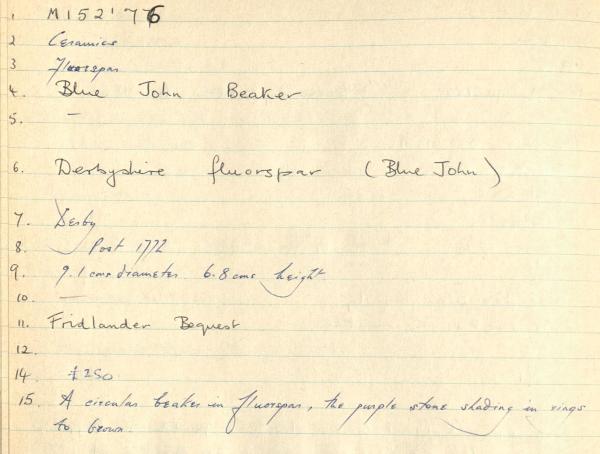 1. M152'776
2 Ceramics
3 Fluorspar
4. Blue John Beaker
5. —
6. Derbyshire fluorspar (Blue John)
7. Derby
8. Post 1772
9. 9.1 cms diameter 6.8 cms height
10. —
11. Fridlander Bequest
12.
14. £250
15. A circular beaker in fluorspar, the purple stone shading in rings
to brown.